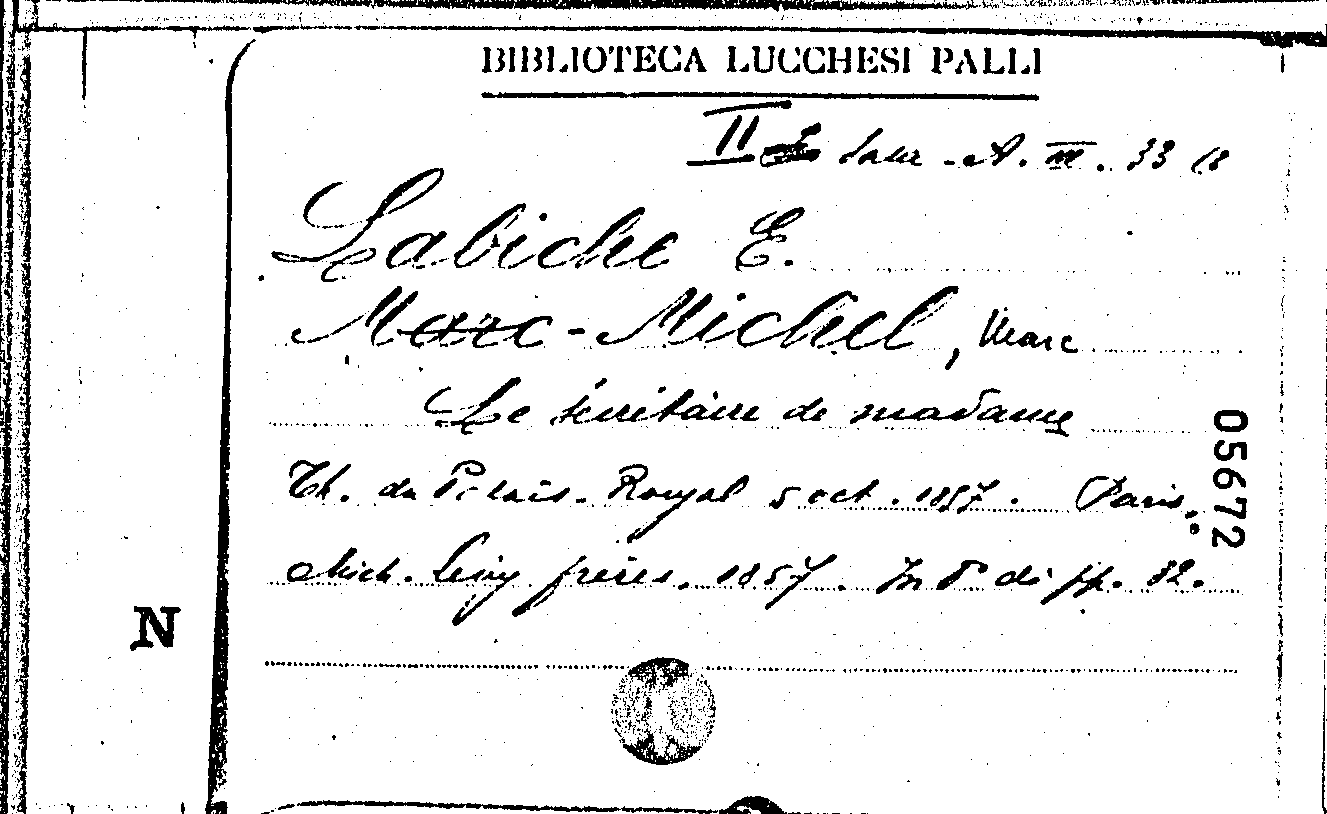 BIBLIOTECA LUCCHESI PALLI
II Sala - A. III. 33 (8
Labiche E.
Marc-Michel, Marc
Le secrétaire de madame
Th. du Palais-Royal 5 oct. 1857. Paris,
Mich. Lévy frères, 1857. In 8° di pp. 32.
05672
N